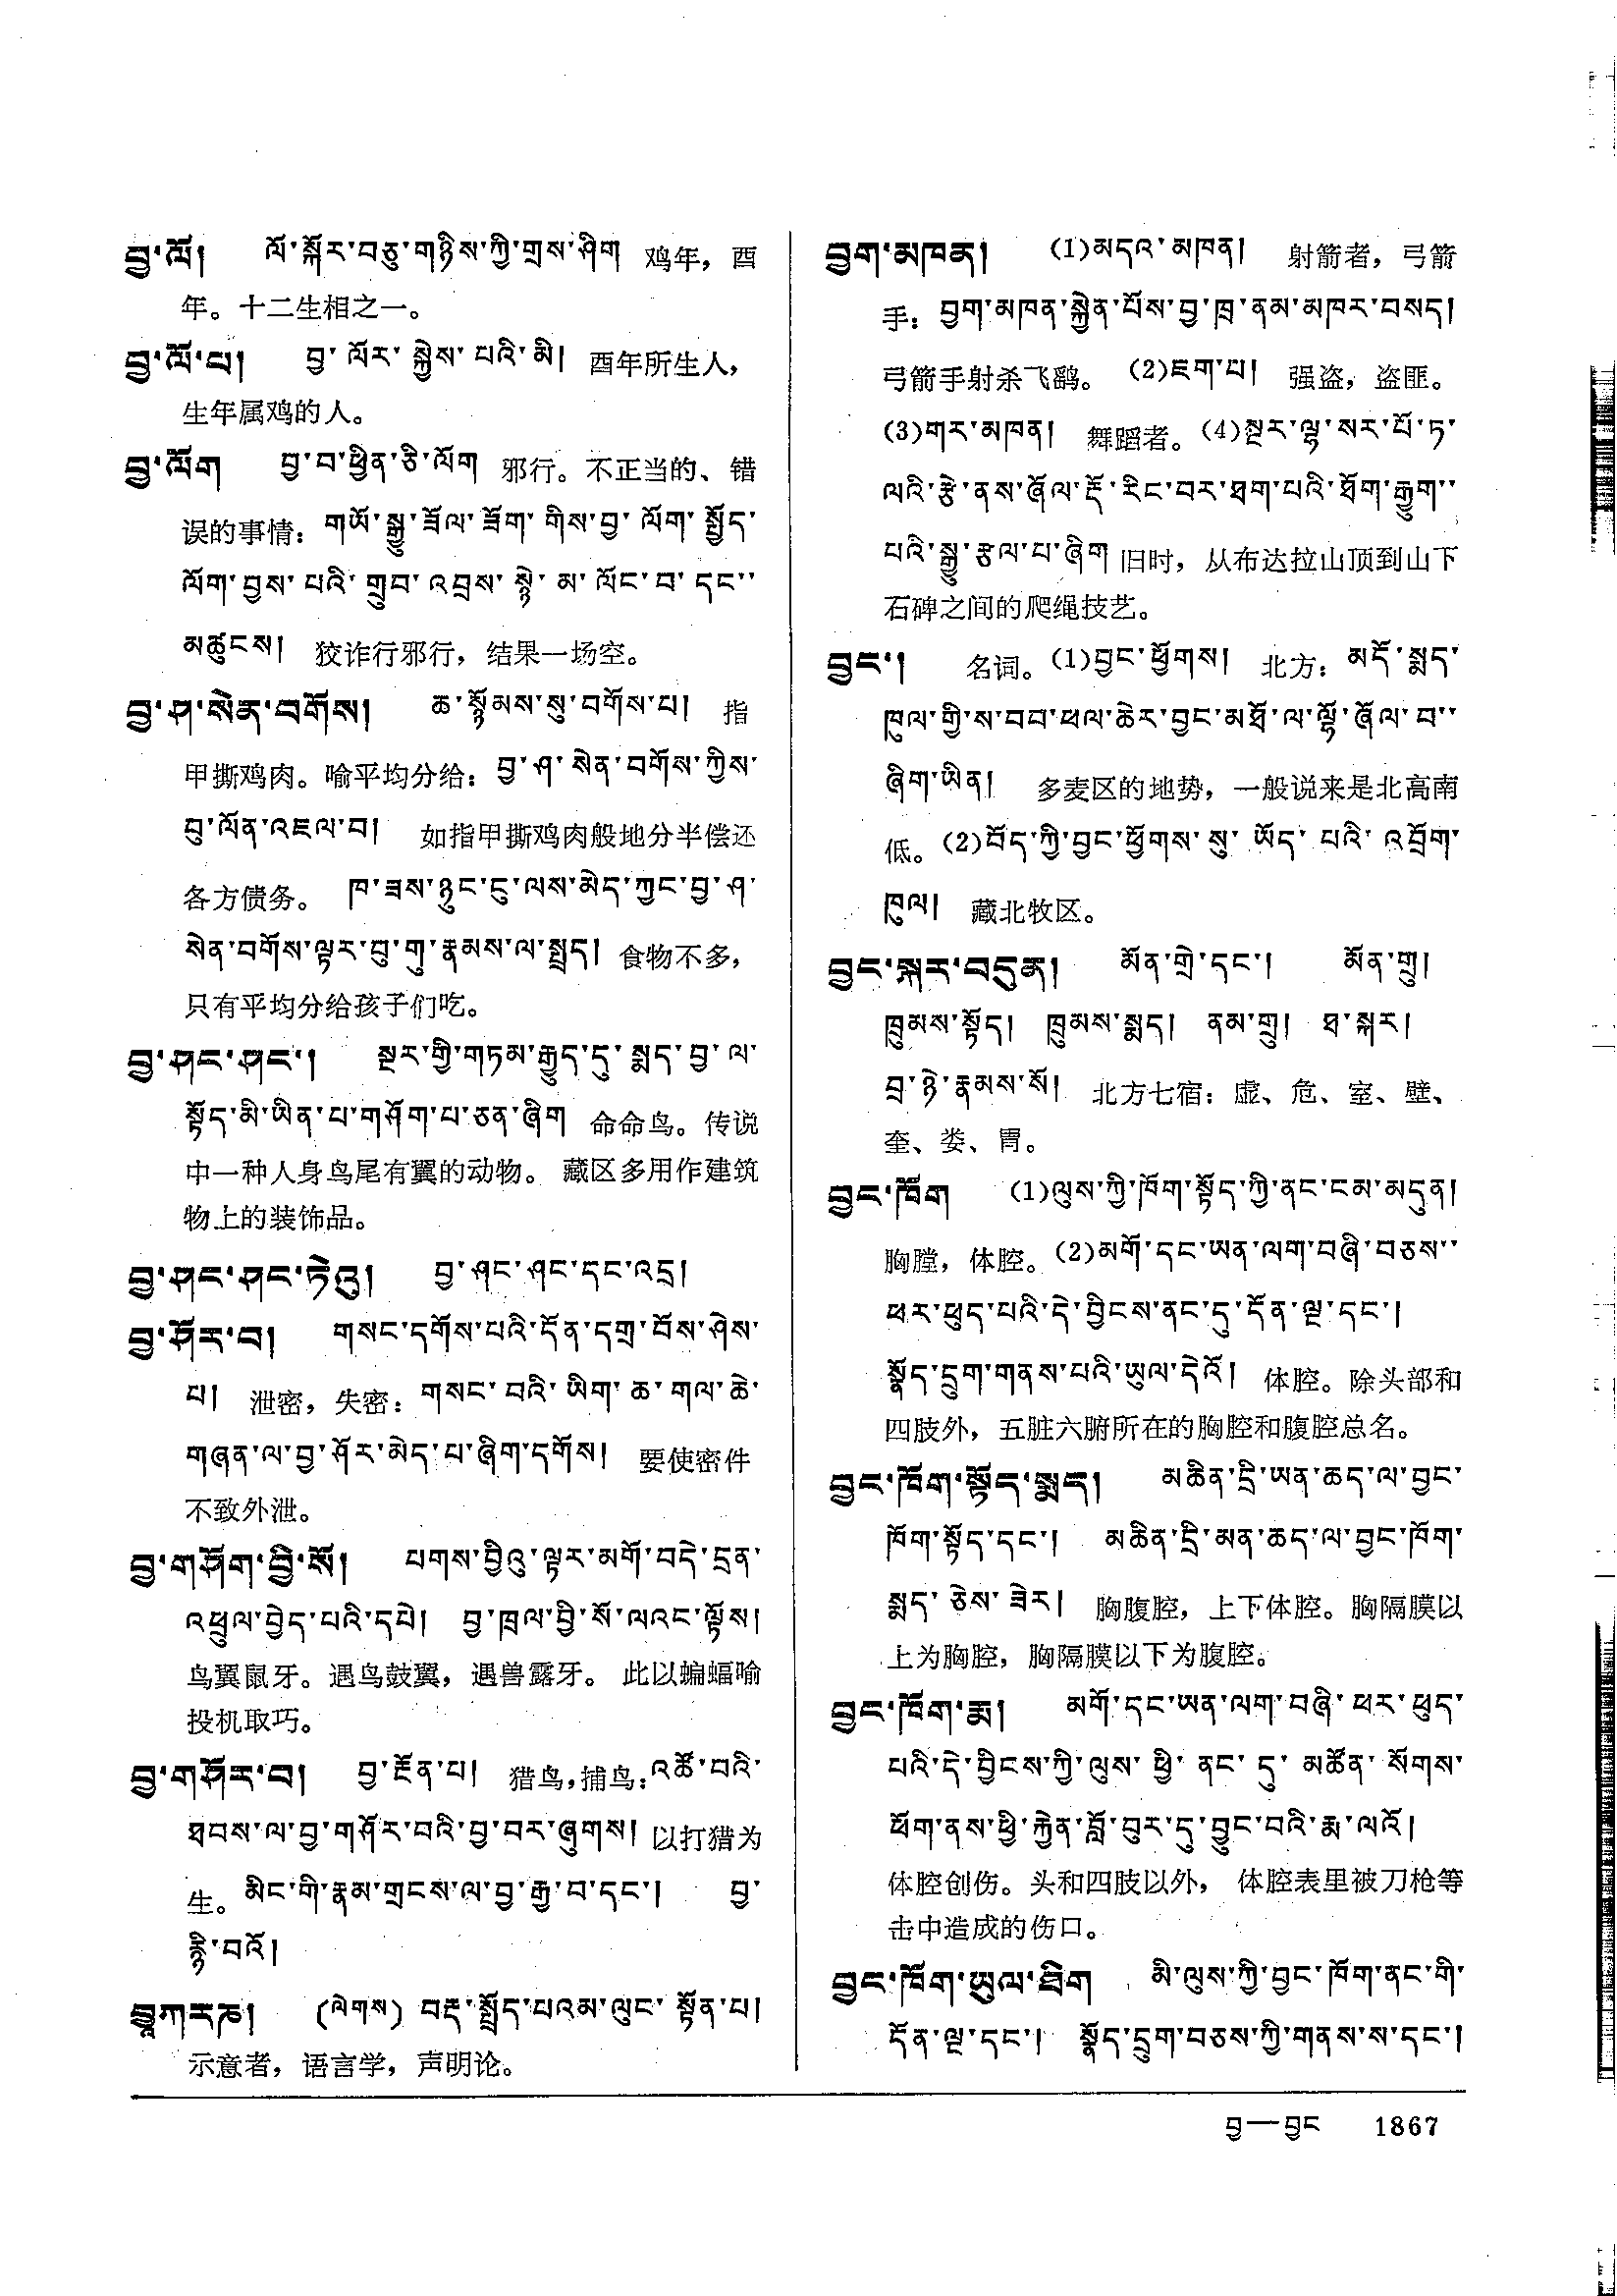 བྱ་ལོ། ལོ་སྐོར་བཅུ་གཉིས་ཀྱི་གྲས་ཤིག 鸡年，酉
年。十二生相之一。
བྱ་ལོ་པ། བྱ་ལོར་སྐྱེས་པའི་མི། 酉年所生人，
生年属鸡的人。
བྱ་ལོག བྱ་བ་ཕྱིན་ཅི་ལོག 邪行。不正当的、错
误的事情：གཡོ་སྒྱུ་ཟོལ་ཟོག་གིས་བྱ་ལོག་སྤྱོད་
ལོག་བྱས་པའི་གྲུབ་འབྲས་སྙེ་མ་ལོང་བ་དང་་
མཚུངས། 狡诈行邪行，结果一场空。
བྱ་ཤ་སེན་བགོས། ཆ་སྙོམས་སུ་བགོས་པ། 指
甲撕鸡肉。喻平均分给：བྱ་ཤ་སེན་བགོས་ཀྱིས་
བུ་ལོན་འཇལ་བ། 如指甲撕鸡肉般地分半偿还
各方债务。 ཁ་ཟས་ཉུང་ངུ་ལས་མེད་ཀྱང་བྱ་ཤ་
སེན་བགོས་ལྟར་བུ་གུ་རྣམས་ལ་སྤྲད། 食物不多，
只有平均分给孩子们吃。
བྱ་ཤང་ཤང་། སྔར་གྱི་གཏམ་རྒྱུད་དུ་སྨད་བྱ་ལ་
སྟོད་མི་ཡིན་པ་གཤོག་པ་ཅན་ཞིག 命命鸟。传说
中一种人身鸟尾有翼的动物。 藏区多用作建筑
物上的装饰品。
བྱ་ཤང་ཤང་ཏེའུ། བྱ་ཤང་ཤང་དང་འདྲ།
བྱ་ཤོར་བ། གསང་དགོས་པའི་དོན་དགྲ་བོས་ཤེས་
པ། 泄密，失密：གསང་བའི་ཡིག་ཆ་གལ་ཆེ་
གཞན་ལ་བྱ་ཤོར་མེད་པ་ཞིག་དགོས། 要使密件
不致外泄。
བྱ་གཤོག་བྱི་སོ། པགས་བྱིའུ་ལྟར་མགོ་བདེ་དྲན་
འཕྲུལ་བྱེད་པའི་དཔེ། བྱ་ཁྲལ་བྱི་སོ་ལའང་ལྟོས།
鸟翼鼠牙。遇鸟鼓翼，遇兽露牙。 此以蝙蝠喻
投机取巧。
བྱ་གཤོར་བ། བྱ་རྔོན་པ། 猎鸟，捕鸟：འཚོ་བའི་
ཐབས་ལ་བྱ་གཤོར་བའི་བྱ་བར་ཞུགས། 以打猎为
生。མིང་གི་རྣམ་གྲངས་ལ་བྱ་རྒྱ་བ་དང་། བྱ་
རྙི་བའོ།
བྱཱ་ཀ་ར་ཎ། (ལེགས) བརྡ་སྤྲོད་པའམ་ལུང་སྟོན་པ།
示意者，语言学，声明论。
བྱག་མཁན། (1)མདའ་མཁན། 射箭者，弓箭
手：བྱག་མཁན་སྐྱེན་པོས་བྱ་ཁྲ་ནམ་མཁར་བསད།
弓箭手射杀飞鹞。 (2)ཇག་པ། 强盗，盗匪。
(3)གར་མཁན། 舞蹈者。(4)སྔར་ལྷ་སར་པོ་ཏ་
ལའི་རྩེ་ནས་ཞོལ་རྡོ་རིང་བར་ཐག་པའི་ཐོག་རྒྱུག་་
པའི་སྒྱུ་རྩལ་པ་ཞིག 旧时，从布达拉山顶到山下
石碑之间的爬绳技艺。
བྱང་། 名词。(1)བྱང་ཕྱོགས། 北方：མདོ་སྨད་
ཁུལ་གྱི་ས་བབ་ཕལ་ཆེར་བྱང་མཐོ་ལ་ལྷོ་ཞོལ་བ་་
ཞིག་ཡིན། 多麦区的地势，一般说来是北高南
低。(2)བོད་ཀྱི་བྱང་ཕྱོགས་སུ་ཡོད་པའི་འབྲོག་
ཁུལ། 藏北牧区。
བྱང་སྐར་བདུན། མོན་གྲེ་དང་། མོན་གྲུ།
ཁྲུམས་སྟོད། ཁྲུམས་སྨད། ནམ་གྲུ། ཐ་སྐར།
བྲ་ཉེ་རྣམས་སོ། 北方七宿：虚、危、室、壁、
奎、娄、胃。
བྱང་ཁོག (1)ལུས་ཀྱི་ཁོག་སྟོད་ཀྱི་ནང་ངམ་མདུན།
胸膛，体腔。(2)མགོ་དང་ཡན་ལག་བཞི་བཅས་་
ཕར་ཕུད་པའི་དེ་བྱིངས་ནང་དུ་དོན་ལྔ་དང་།
སྣོད་དྲུག་གནས་པའི་ཡུལ་དེའོ། 体腔。除头部和
四肢外，五脏六腑所在的胸腔和腹腔总名。
བྱང་ཁོག་སྟོད་སྨད། མཆིན་དྲི་ཡན་ཆད་ལ་བྱང་
ཁོག་སྟོད་དང་། མཆིན་དྲི་མན་ཆད་ལ་བྱང་ཁོག་
སྨད་ཅེས་ཟེར། 胸腹腔，上下体腔。胸隔膜以
上为胸腔，胸隔膜以下为腹腔。
བྱང་ཁོག་རྨ། མགོ་དང་ཡན་ལག་བཞི་ཕར་ཕུད་
པའི་དེ་བྱིངས་ཀྱི་ལུས་ཕྱི་ནང་དུ་མཚོན་སོགས་
ཕོག་ནས་ཕྱི་རྐྱེན་བློ་བུར་དུ་བྱུང་བའི་རྨ་ལའོ།
体腔创伤。头和四肢以外， 体腔表里被刀枪等
击中造成的伤口。
བྱང་ཁོག་ཡུལ་ཐིག མི་ལུས་ཀྱི་བྱང་ཁོག་ནང་གི་
དོན་ལྔ་དང་། སྣོད་དྲུག་བཅས་ཀྱི་གནས་ས་དང་།
བྱ—བྱང 1867